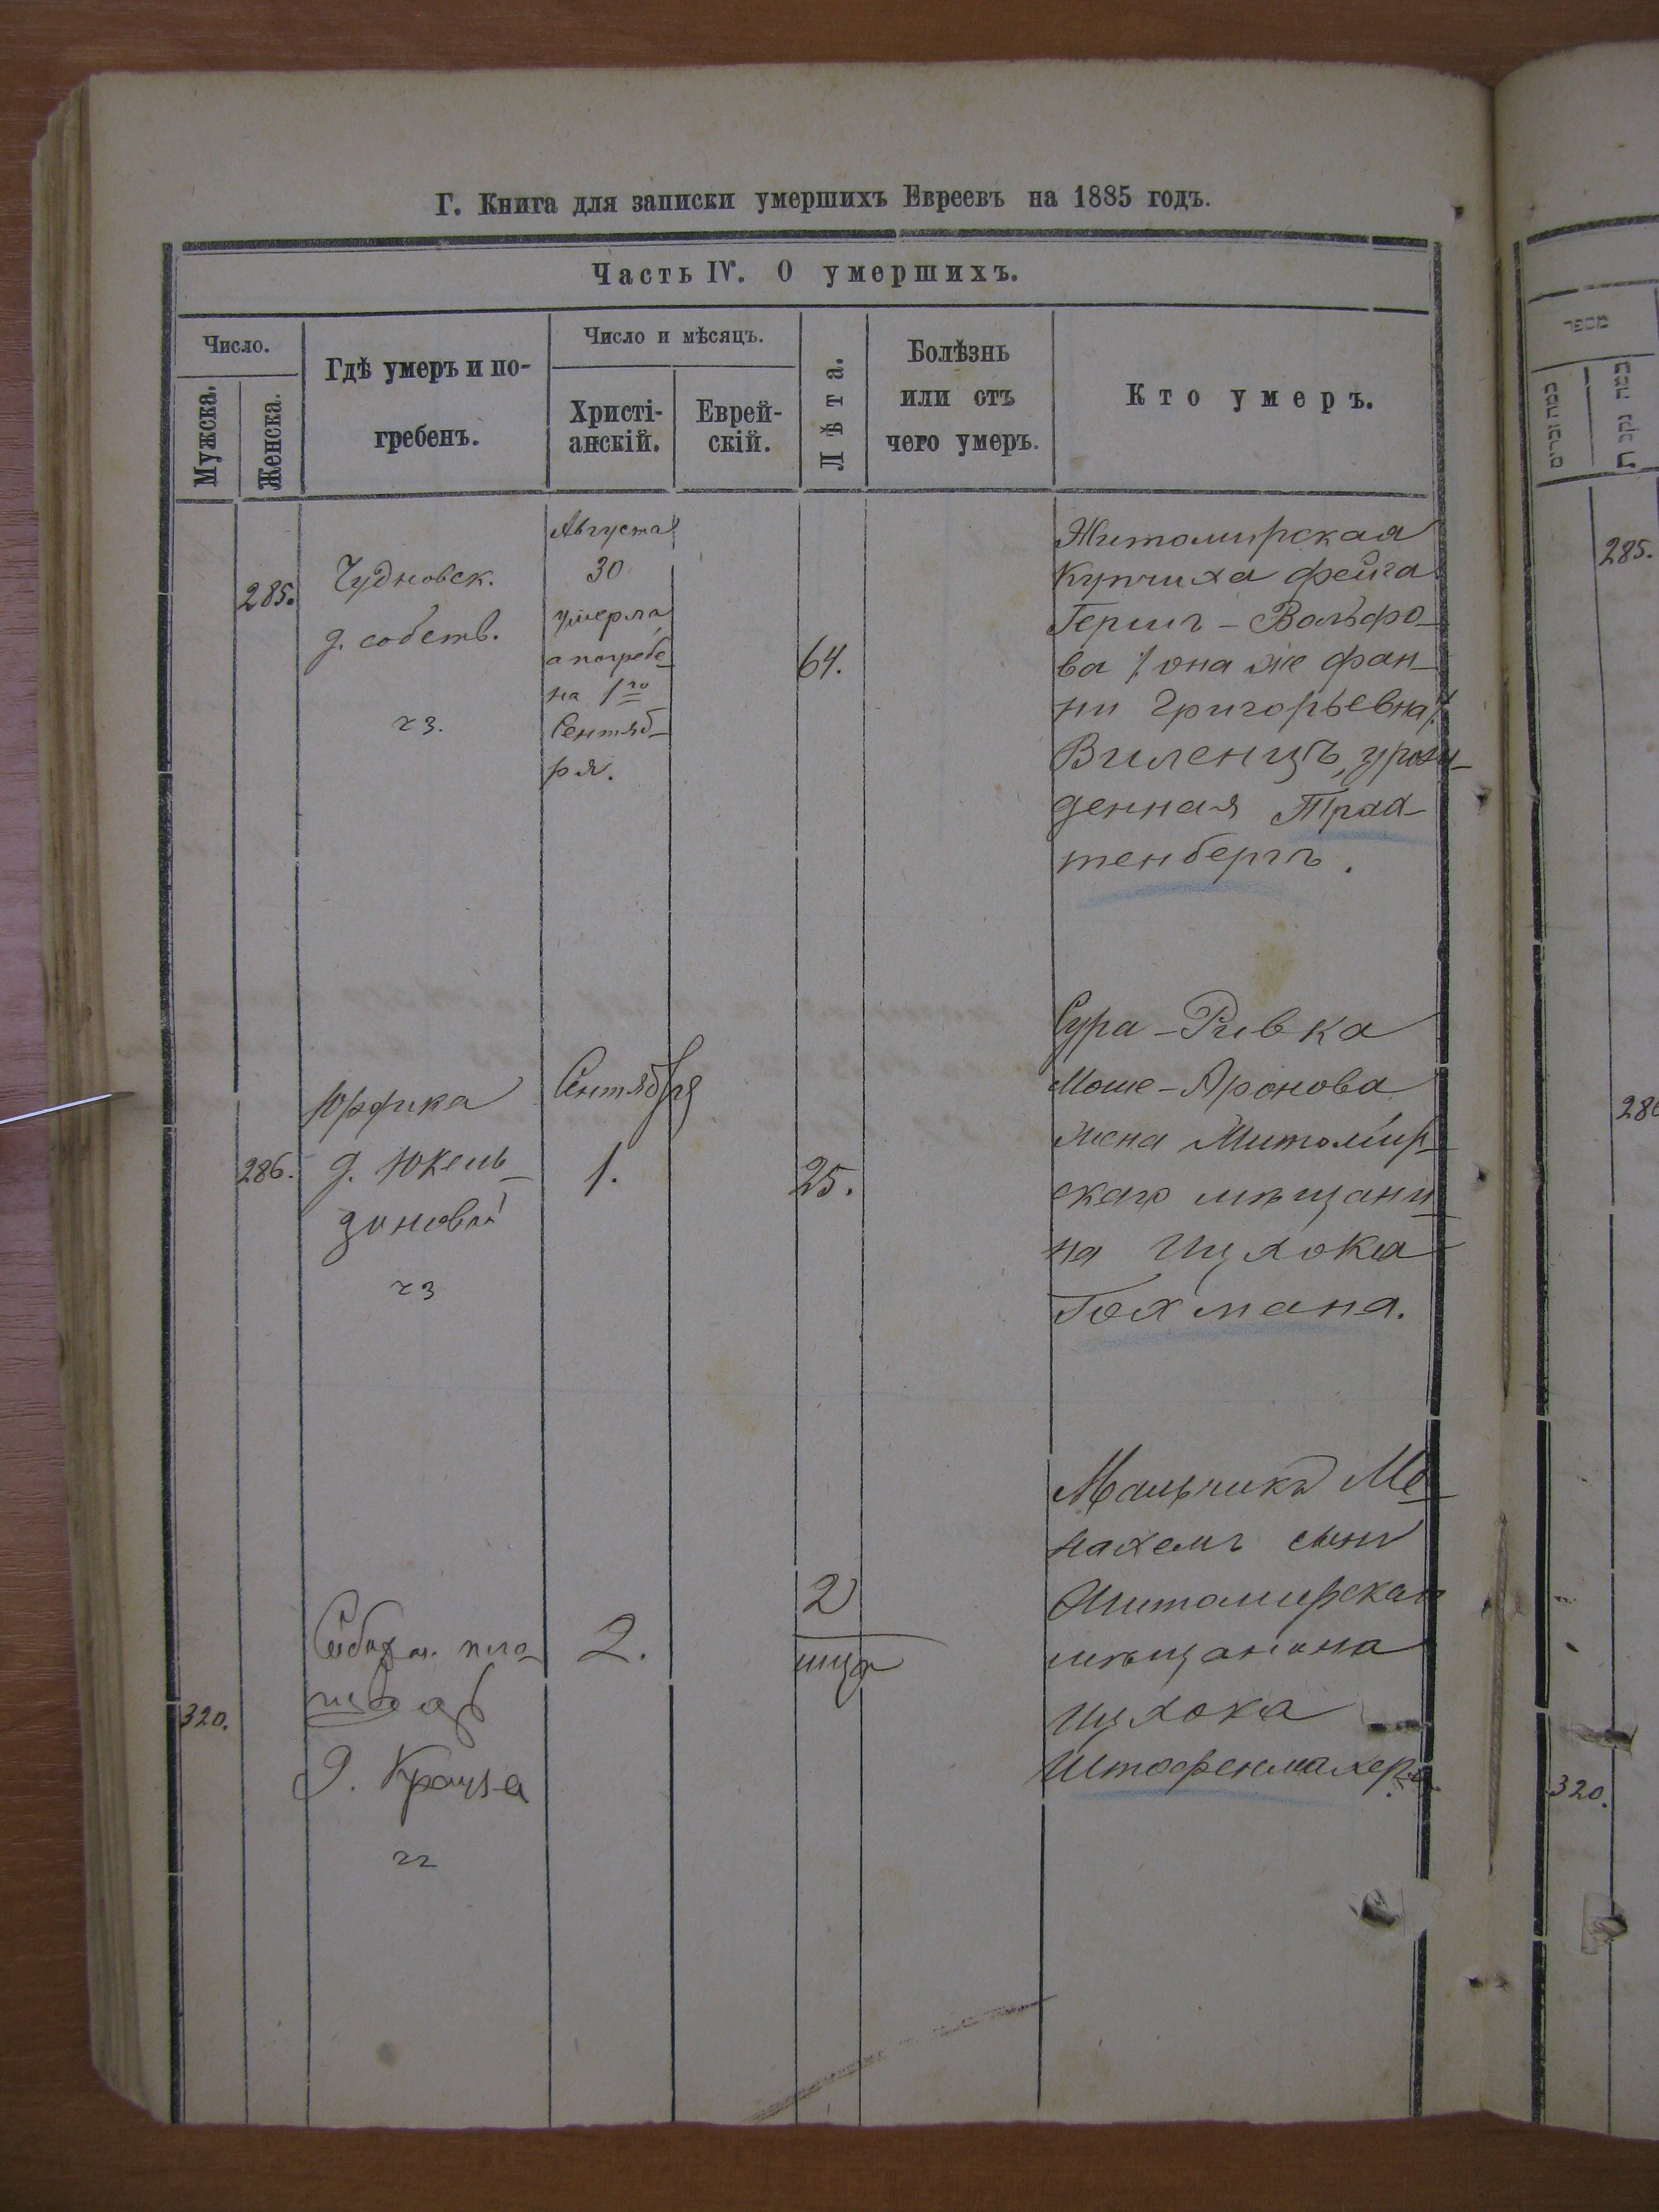 Г. Книга для записки умершихъ Евреевъ на 1885 годъ.
Часть IV. О умершихъ.
Число.
Мужска.
Женска.
Гдѣ умеръ и по-
гребенъ.
Число и мѣсяцъ.
Христі-
анскій.
Еврей-
скій.
Лѣта.
Болѣзнь
или отъ
чего умеръ.
Кто умеръ.
285.
Чудновск.
д. собств.
ч 3.
Августа
30
умерла
а погребе-
на 1го
Сентяб-
ря.
64.
Житомирская
Купчиха Фейга
Гершг-Вольфо-
ва /. она же Фан-
ни Григорьевна ./
Виленцъ, урож-
денная Трах-
тенбергъ.
286.
д.
ч 3
Сентября
1.
25.
Сура-Ривка
Моше-Аронова
жена Житомир-
скаго мѣщани-
на Ицхока
Гохмана.
320.
д. Крауза
ч 2
2.
2
мца
Мальчикъ Ме-
нахемъ сынъ
Житомирскаго
мѣщанина
Ицхока
Штофенмахера.
285.
286
320.